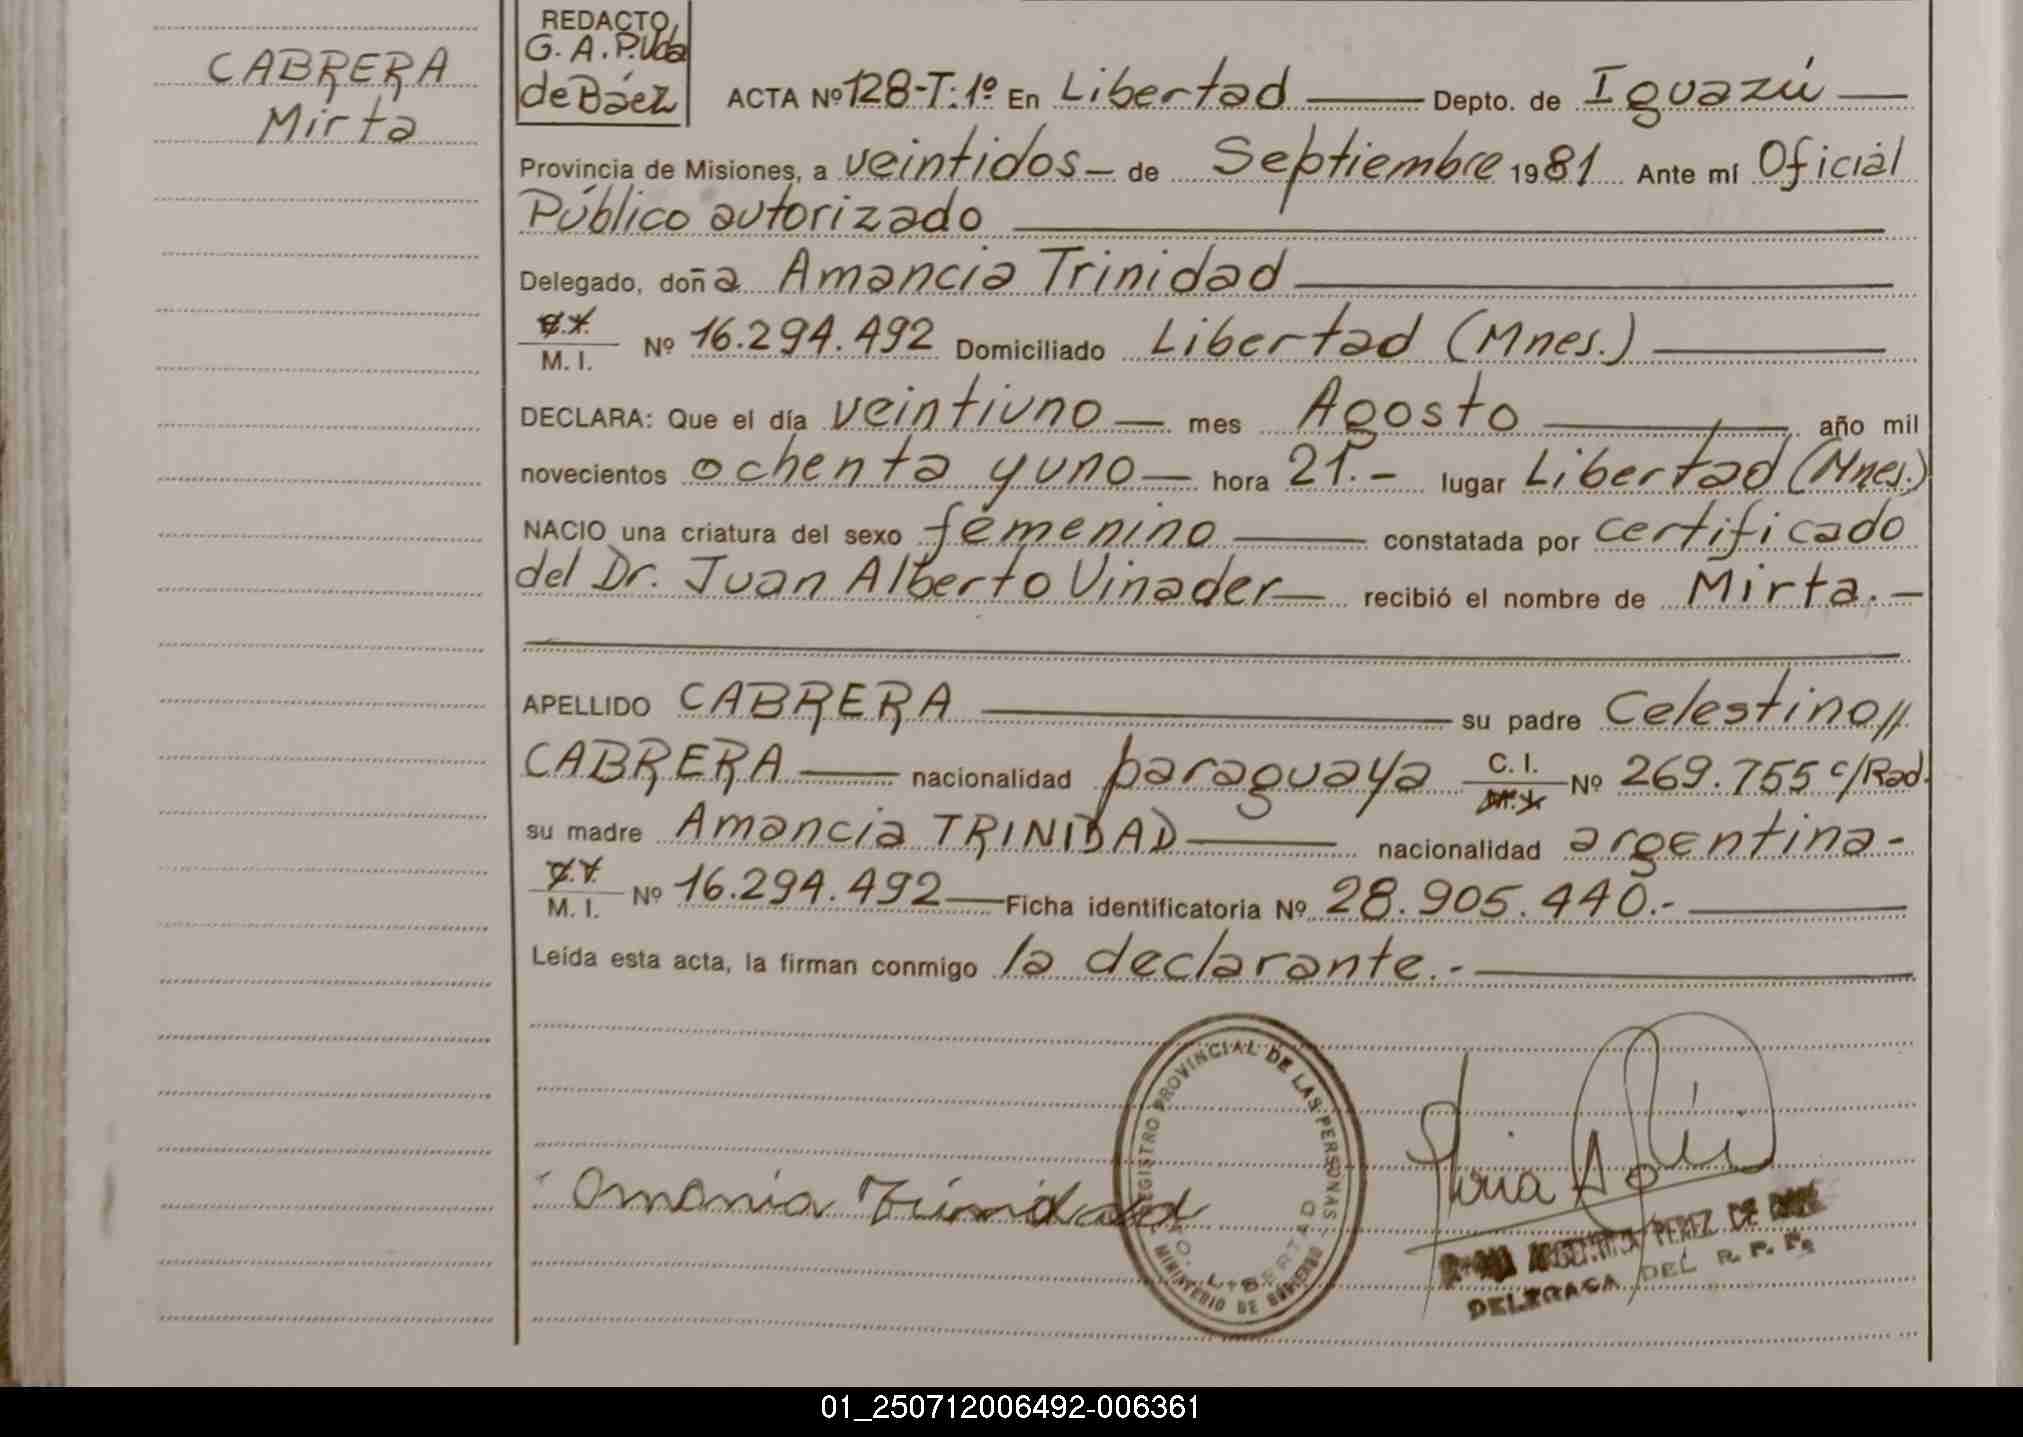 CABRERA
Mirta
REDACTO
G. A. P. Vda
de Báez
ACTA Nº 128-T:1º En Libertad Depto. de Iguazú
Provincia de Misiones, a veintidos de Septiembre 1981 Ante mí Oficial
Público autorizado
Delegado, doña Amancia Trinidad
M. I. Nº 16.294.492 Domiciliado Libertad (Mnes.)
DECLARA: Que el día veintiuno mes Agosto año mil
novecientos ochenta y uno hora 21.- lugar Libertad (Mnes.)
NACIO una criatura del sexo femenino constatada por certificado
del Dr. Juan Alberto Vinader recibió el nombre de Mirta.-
APELLIDO CABRERA su padre Celestino//
CABRERA nacionalidad paraguaya C. I. Nº 269.755 c/Rad.
su madre Amancia TRINIDAD nacionalidad argentina-
M. I. Nº 16.294.492 Ficha identificatoria Nº 28.905.440.-
Leída esta acta, la firman conmigo la declarante.-
REGISTRO PROVINCIAL DE LAS PERSONAS
LIBERTAD
MINISTERIO DE GOBIERNO
Trinidad
PEREZ DE
DELEGADA DEL R. P. P.
01_250712006492-006361